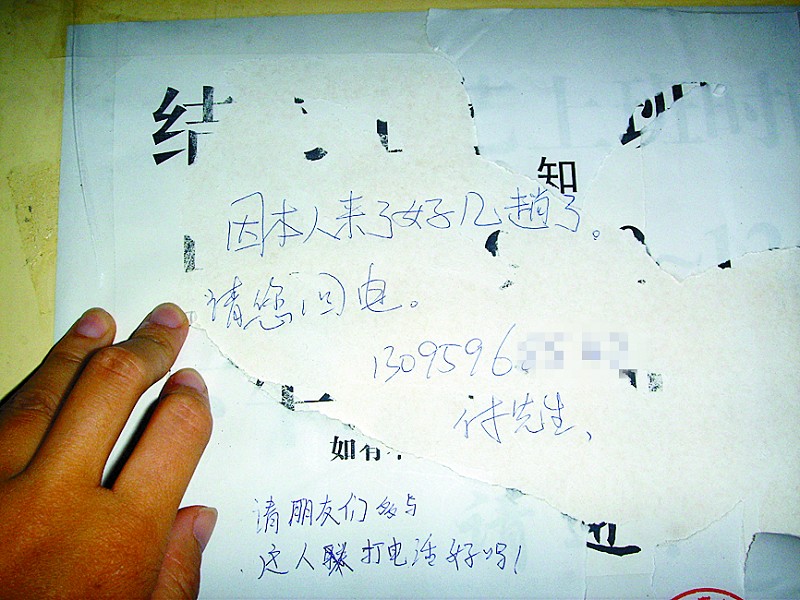 结
知
因本人来了好几趟了。
请您回电。
1309596
付先生、
如有
请朋友们多与
这人联打电话好吗！